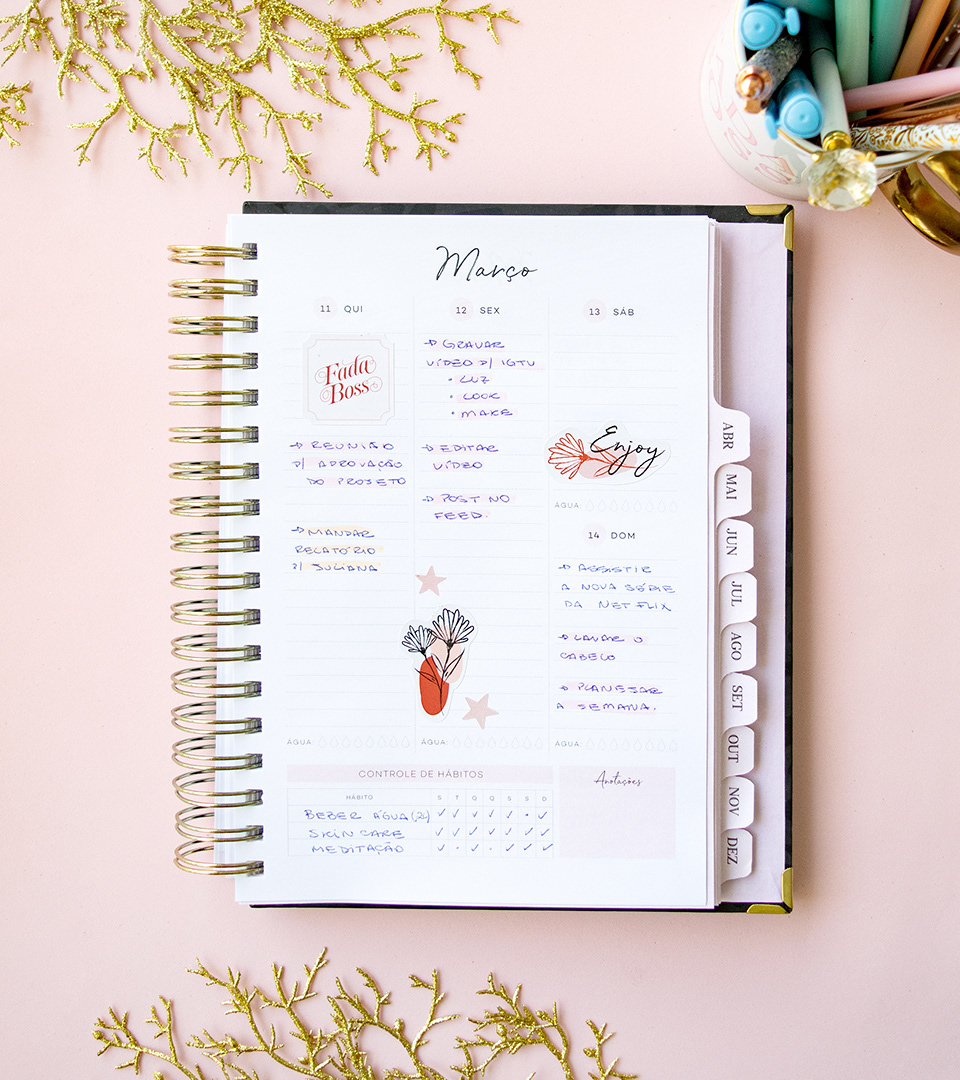 Março
11 QUI
Fada
Boss
→ REUNIÃO
P/ APROVAÇÃO
DO PROJETO
→ MANDAR
RELATÓRIO
P/ JULIANA
ÁGUA:
12 SEX
→ GRAVAR
VÍDEO P/ IGTV
• LUZ
• LOOK
• MAKE
→ EDITAR
VÍDEO
→ POST NO
FEED.
ÁGUA:
13 SÁB
Enjoy
ÁGUA:
14 DOM
→ ASSISTIR
A NOVA SÉRIE
DA NETFLIX
→ LAVAR O
CABELO
→ PLANEJAR
A SEMANA.
ÁGUA:
CONTROLE DE HÁBITOS
HÁBITO S T Q Q S S D
BEBER ÁGUA (2L) ✓ ✓ ✓ ✓ ✓ • ✓
SKIN CARE ✓ ✓ ✓ ✓ ✓ ✓ ✓
MEDITAÇÃO ✓ • ✓ • ✓ ✓ ✓
Anotações
ABR
MAI
JUN
JUL
AGO
SET
OUT
NOV
DEZ